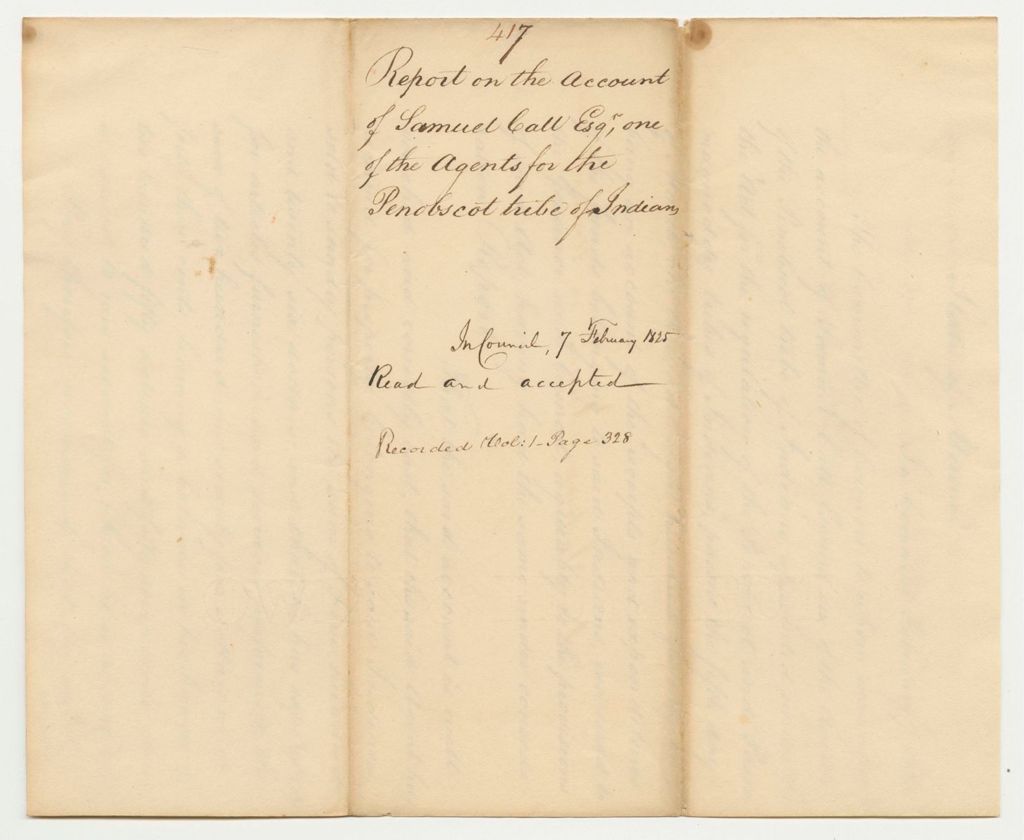 417
Report on the Account
of Samuel Call Esqr, one
of the Agents for the
Penobscot tribe of Indians
In Council, 7 February 1825
Read and accepted
Recorded Vol: 1 - Page 328